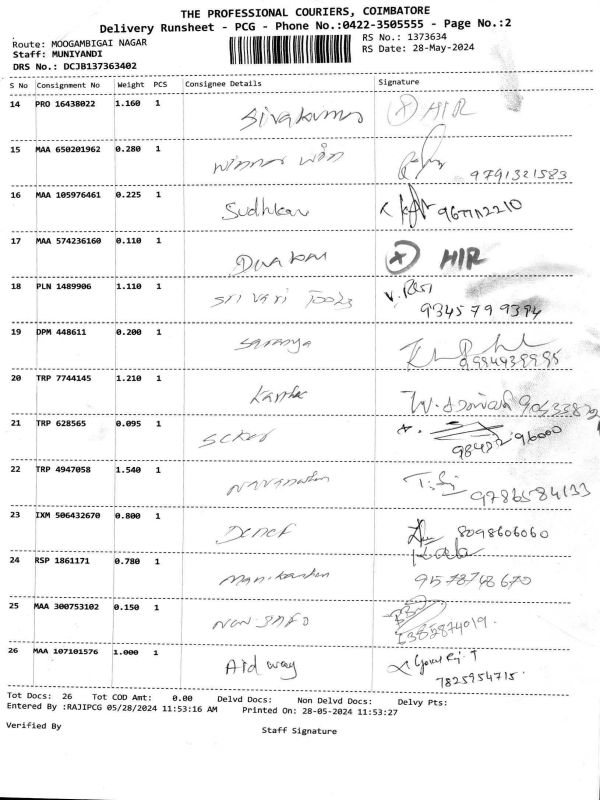 THE PROFESSIONAL COURIERS, COIMBATORE
Delivery Runsheet - PCG - Phone No.:0422-3505555 - Page No.:2
Route: MOOGAMBIGAI NAGAR RS No.: 1373634
Staff: MUNIYANDI RS Date: 28-May-2024
DRS No.: DCJB137363402
S No Consignment No Weight PCS Consignee Details Signature
14 PRO 16438022 1.160 1 Sivakumar X HIR
15 MAA 650201962 0.280 1 winner win 9791321583
16 MAA 105976461 0.225 1 Sudhkar
17 MAA 574236160 0.110 1 Diwakar X HIR
18 PLN 1489906 1.110 1 Sri vari Tools 9345799394
19 DPM 448611 0.200 1 Saranya 9994439995
20 TRP 7744145 1.210 1
21 TRP 628565 0.095 1 98422 96000
22 TRP 4947058 1.540 1 9786584133
23 IXM 506432670 0.800 1 8098606060
24 RSP 1861171 0.780 1 Manikandan Kala 9578748670
25 MAA 300753102 0.150 1 6385874019
26 MAA 107101576 1.000 1 Aid way 7825954715
Tot Docs: 26 Tot COD Amt: 0.00 Delvd Docs: Non Delvd Docs: Delvy Pts:
Entered By :RAJIPCG 05/28/2024 11:53:16 AM Printed On: 28-05-2024 11:53:27
Verified By Staff Signature